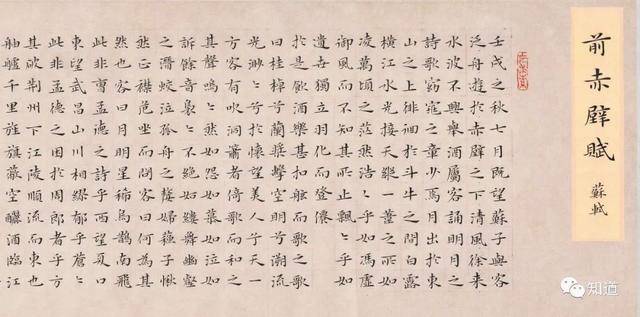 前赤壁賦
蘇軾
壬戌之秋七月既望蘇子與客
泛舟遊於赤壁之下清風徐來
水波不興舉酒屬客誦明月之
詩歌窈窕之章少焉月出於東
山之上徘徊於斗牛之間白露
橫江水光接天縱一葦之所如
凌萬頃之茫然浩〻乎如馮虛
御風而不知其所止飄〻乎如
遺世獨立羽化而登僊
於是飲酒樂甚扣舷而歌之歌
曰桂棹兮蘭槳擊空明兮溯流
光渺〻兮於懷望美人兮天一
方客有吹洞簫者倚歌而和之
其聲嗚〻然如怨如慕如泣如
訴餘音裊〻不絕如縷舞幽壑
之潛蛟泣孤舟之嫠婦蘇子愀
然正襟危坐而問客曰何為其
然也客曰月明星稀烏鵲南飛
此非曹孟德之詩乎西望夏口
東望武昌山川相繆鬱乎蒼〻
此非孟德之困於周郎者乎方
其破荊州下江陵順流而東也
舳艫千里旌旗蔽空釃酒臨江
知道